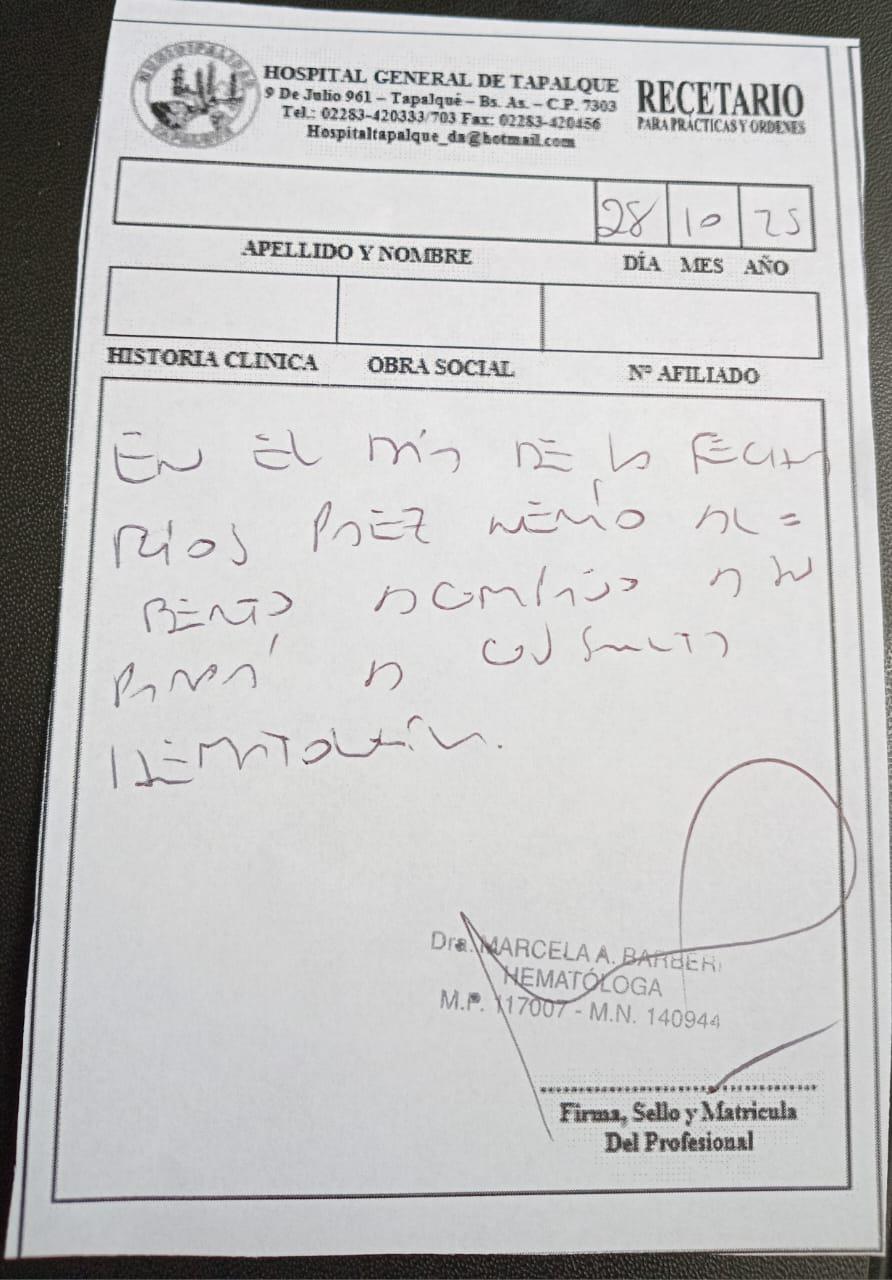 MUNICIPALIDAD
TAPALQUE
HOSPITAL GENERAL DE TAPALQUE
9 De Julio 961 – Tapalqué – Bs. As. – C.P. 7303
Tel.: 02283-420333/703 Fax: 02283-420456
Hospitaltapalque_da@hotmail.com
RECETARIO
PARA PRÁCTICAS Y ORDENES
28 10 25
APELLIDO Y NOMBRE
DÍA MES AÑO
HISTORIA CLINICA OBRA SOCIAL Nº AFILIADO
EN EL DÍA DE LA FECHA
RÍOS PAEZ AL=
BERTO A SU
PAPÁ A CONSULTA
HEMATOLOGÍA.
Dra. MARCELA A. BARBERI
HEMATÓLOGA
M.P. 117007 - M.N. 140944
Firma, Sello y Matricula
Del Profesional